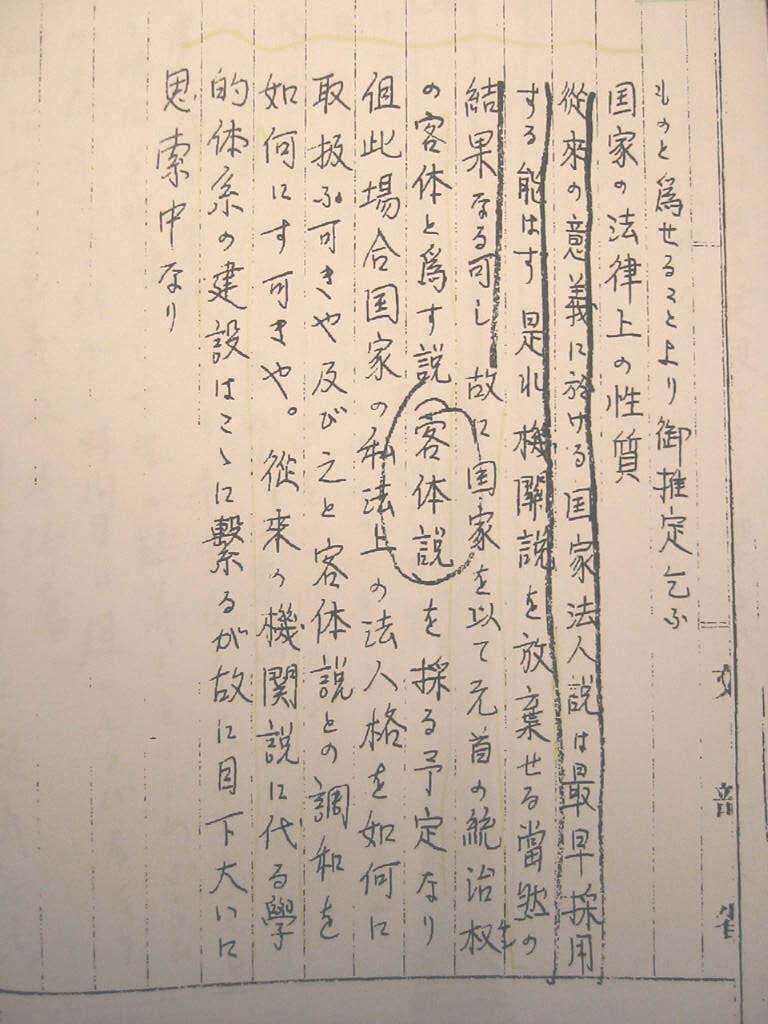 ものと爲せることより御推定乞ふ
国家の法律上の性質
從來の意義に於ける国家法人説は最早採用
する能はす是れ機関説を放棄せる當然の
結果なる可し故に国家を以て元首の統治权
の客体と爲す説(客体説)を採る予定なり
但此場合国家の私法上の法人格を如何に
取扱ふ可きや及び之と客体説との調和を
如何にす可きや。從来の機関説に代る學
的体系の建設はこゝに繋るが故に目下大いに
思索中なり
文部省